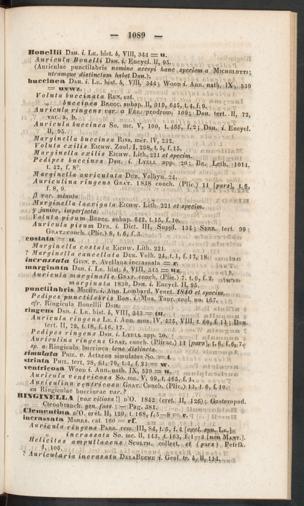 — 1089 —
Bonellii Desh. i. Lk. hist. b, VIII, 344 = u.
Auricula Bonelli Desh. i. Encycl. II, 95.
(Auriculae punctilabris nomine accepi hanc speciem a Michelotti;
utramque distinctam habet Desh.).
buccinea Desh. i. Lk. hist. b, VIII, 343; Wood i. Ann. nath. IX, 539
= uvwz.
Voluta buccinata Ren. cat.
buccinea Brocc. subap. II, 319, 645, t. 4, f. 9.
Auricula ringens var. a Fér. prodrom. 109; Desh. tert. II, 72,
var. a, b.
Auricula buccinea So. mc. V, 100, t. 465, f. 2; Desh. i. Encycl.
II, 95.
Marginella buccinea Riss. mer. IV, 232.
Voluta exilis Eichw. Zool. I, 298, t. 5, f. 15.
Marginella exilis Eichw. Lith. 221 et specim.
Pedipes buccinea Desh. i. Leth. 1031,
t. 42, f. 8.
Marginella auriculata Dub. Volhyn. 24.
Auriculina ringens Grat. 1838 conch. (Plic.) 11 [pars], t. 6,
f. 8, 9.
β var. minuta
Marginella laevigata Eichw. Lith. 221 et specim.
γ junior, imperfecta;
Voluta pisum Brocc. subap. 642, t. 15, f. 10.
Auricula pisum Dfr. i. Dict. III, Suppl. 134; Serr. tert. 99;
Grat. conch. (Plic.) 8, t. 6, f. 5.
costata = u.
Marginella costata Eichw. Lith. 221.
? Marginella cancellata Dub. Volh. 24, t. 1, f. 17, 18.
incrassata Grv. e. Avellana incrassata = r.
marginata Desh. i. Lk. hist. b, VIII, 345 = u.
Auricula marginata Grat. conch. (Plic.) 7, t. 6, f. 3
marginata 1830, Desh. i. Encycl. II, 95.
punctilabris Menke i. Ann. Lombard. Venet. 1840 et specim.
Pedipes punctilabris Bon. i. Mus. Taur. cool. no. 167.
cfr. Ringicula Bonellii Desh.
ringens Desh. i. Lk. hist. b, VIII, 343 = t.
Auricula ringens Lk. i. Ann. mus. IV, 435, VIII, t. 60, f. 11; Desh.
tert. II, 72, t. 8, f. 16, 17.
Pedipes ringens Desh. i. Lyell app. 20.
Auriculina ringens Grat. conch. (Plicac.) 11 [pars], t. 6, f. 6, 7;
op. a Ringicula buccinea bene distincta.
simulata Phil. v. Actaeon simulatus So. = t.
striata Phil. tert. 28, 61, 70, t. 4, f. 23 = w.
ventricosa Wood i. Ann. nath. IX, 539 = u.
Auricula ventricosa So. mc. V, 99, t. 465, f. 1.
Auriculina ventricosa Grat. Conch. (Plic.) 13, t. 6, f. 10.
en Ringiculae buccineae var.?
RINGINELLA [vox vitiosa!] d'O. 1842: (crét. II, 126); Gasteropod.
— Ctenobranch. gen. foss. : — Pag. 381.
Clementina d'O. crét. II, 129, t. 168, f. 5—8 = r.
incrassata Morrs. cat. 160 = rf.
Auricula ringens Park. rem. III, 54, t. 5, f. 4 [excl. syn. Lk.];
incrassata So. mc. II, 143, t. 163, f. 1—3 [non Mant.].
Helicites ampullacea Schlth. collect. et (pars) Petrfk.
I, 105.
? Auricularia incrassata DelaBeche i. Geol. tr. b, II, 114.